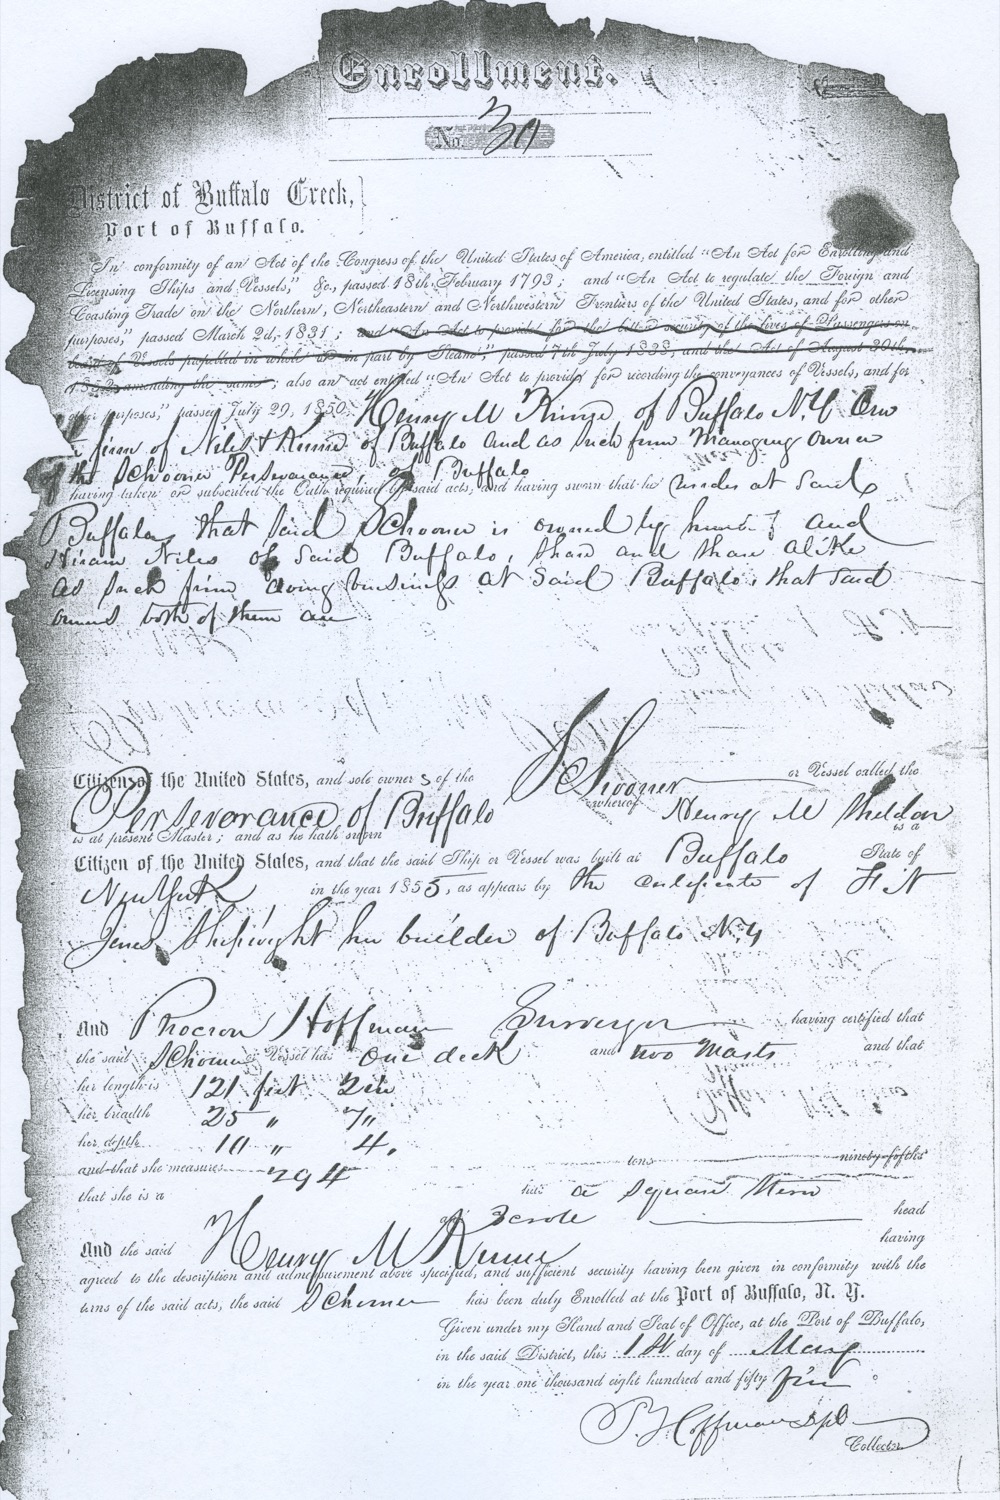 Enrollment.
No. 39
District of Buffalo Creek,
Port of Buffalo.
In conformity of an Act of the Congress of the United States of America, entitled "An Act for Enrolling and
Licensing Ships and Vessels," &c., passed 18th February 1793; and "An Act to regulate the Foreign and
Coasting Trade on the Northern, Northeastern and Northwestern Frontiers of the United States, and for other
purposes," passed March 2d, 1831; and "An Act to provide for the better security of the lives of Passengers on
board of Vessels propelled in whole or in part by Steam," passed 7th July 1838, and the Act of August 30th,
1852 amending the same; also an act entitled "An Act to provide for recording the conveyances of Vessels, and for
other purposes," passed July 29, 1850. Henry M Kinne of Buffalo N.Y. One
firm of Niles & Kinne of Buffalo and as such firm Managing owner
of the Schooner Perseverance, of Buffalo
having taken or subscribed the Oath required by said acts, and having sworn that he resides at said
Buffalo, that said Schooner is owned by him and
Hiram Niles of said Buffalo, share and share alike
as such firm doing business at said Buffalo, that said
owners both of them are
Citizens of the United States, and sole owner s of the Schooner or Vessel called the
Perseverance of Buffalo whereof Henry M Sheldon
is at present Master; and as he hath sworn is a
Citizen of the United States, and that the said Ship or Vessel was built at Buffalo State of
New York in the year 1855, as appears by the certificate of F N
Jones Shipwright her builder of Buffalo N.Y
And Phocion Hoffman Surveyor having certified that
the said Schooner Vessel has one deck and two Masts and that
her length is 121 feet 2 in
her breadth 25 " 7 "
her depth 10 " 4.
and that she measures 294 tons ninety-fifths
that she is a has a square stern
a Scrole head
And the said Henry M Kinne having
agreed to the description and admeasurement above specified, and sufficient security having been given in conformity with the
terms of the said acts, the said Schooner has been duly Enrolled at the Port of Buffalo, N. Y.
Given under my Hand and Seal of Office, at the Port of Buffalo,
in the said District, this 1st day of May
in the year one thousand eight hundred and fifty five
Hoffman
Collector.